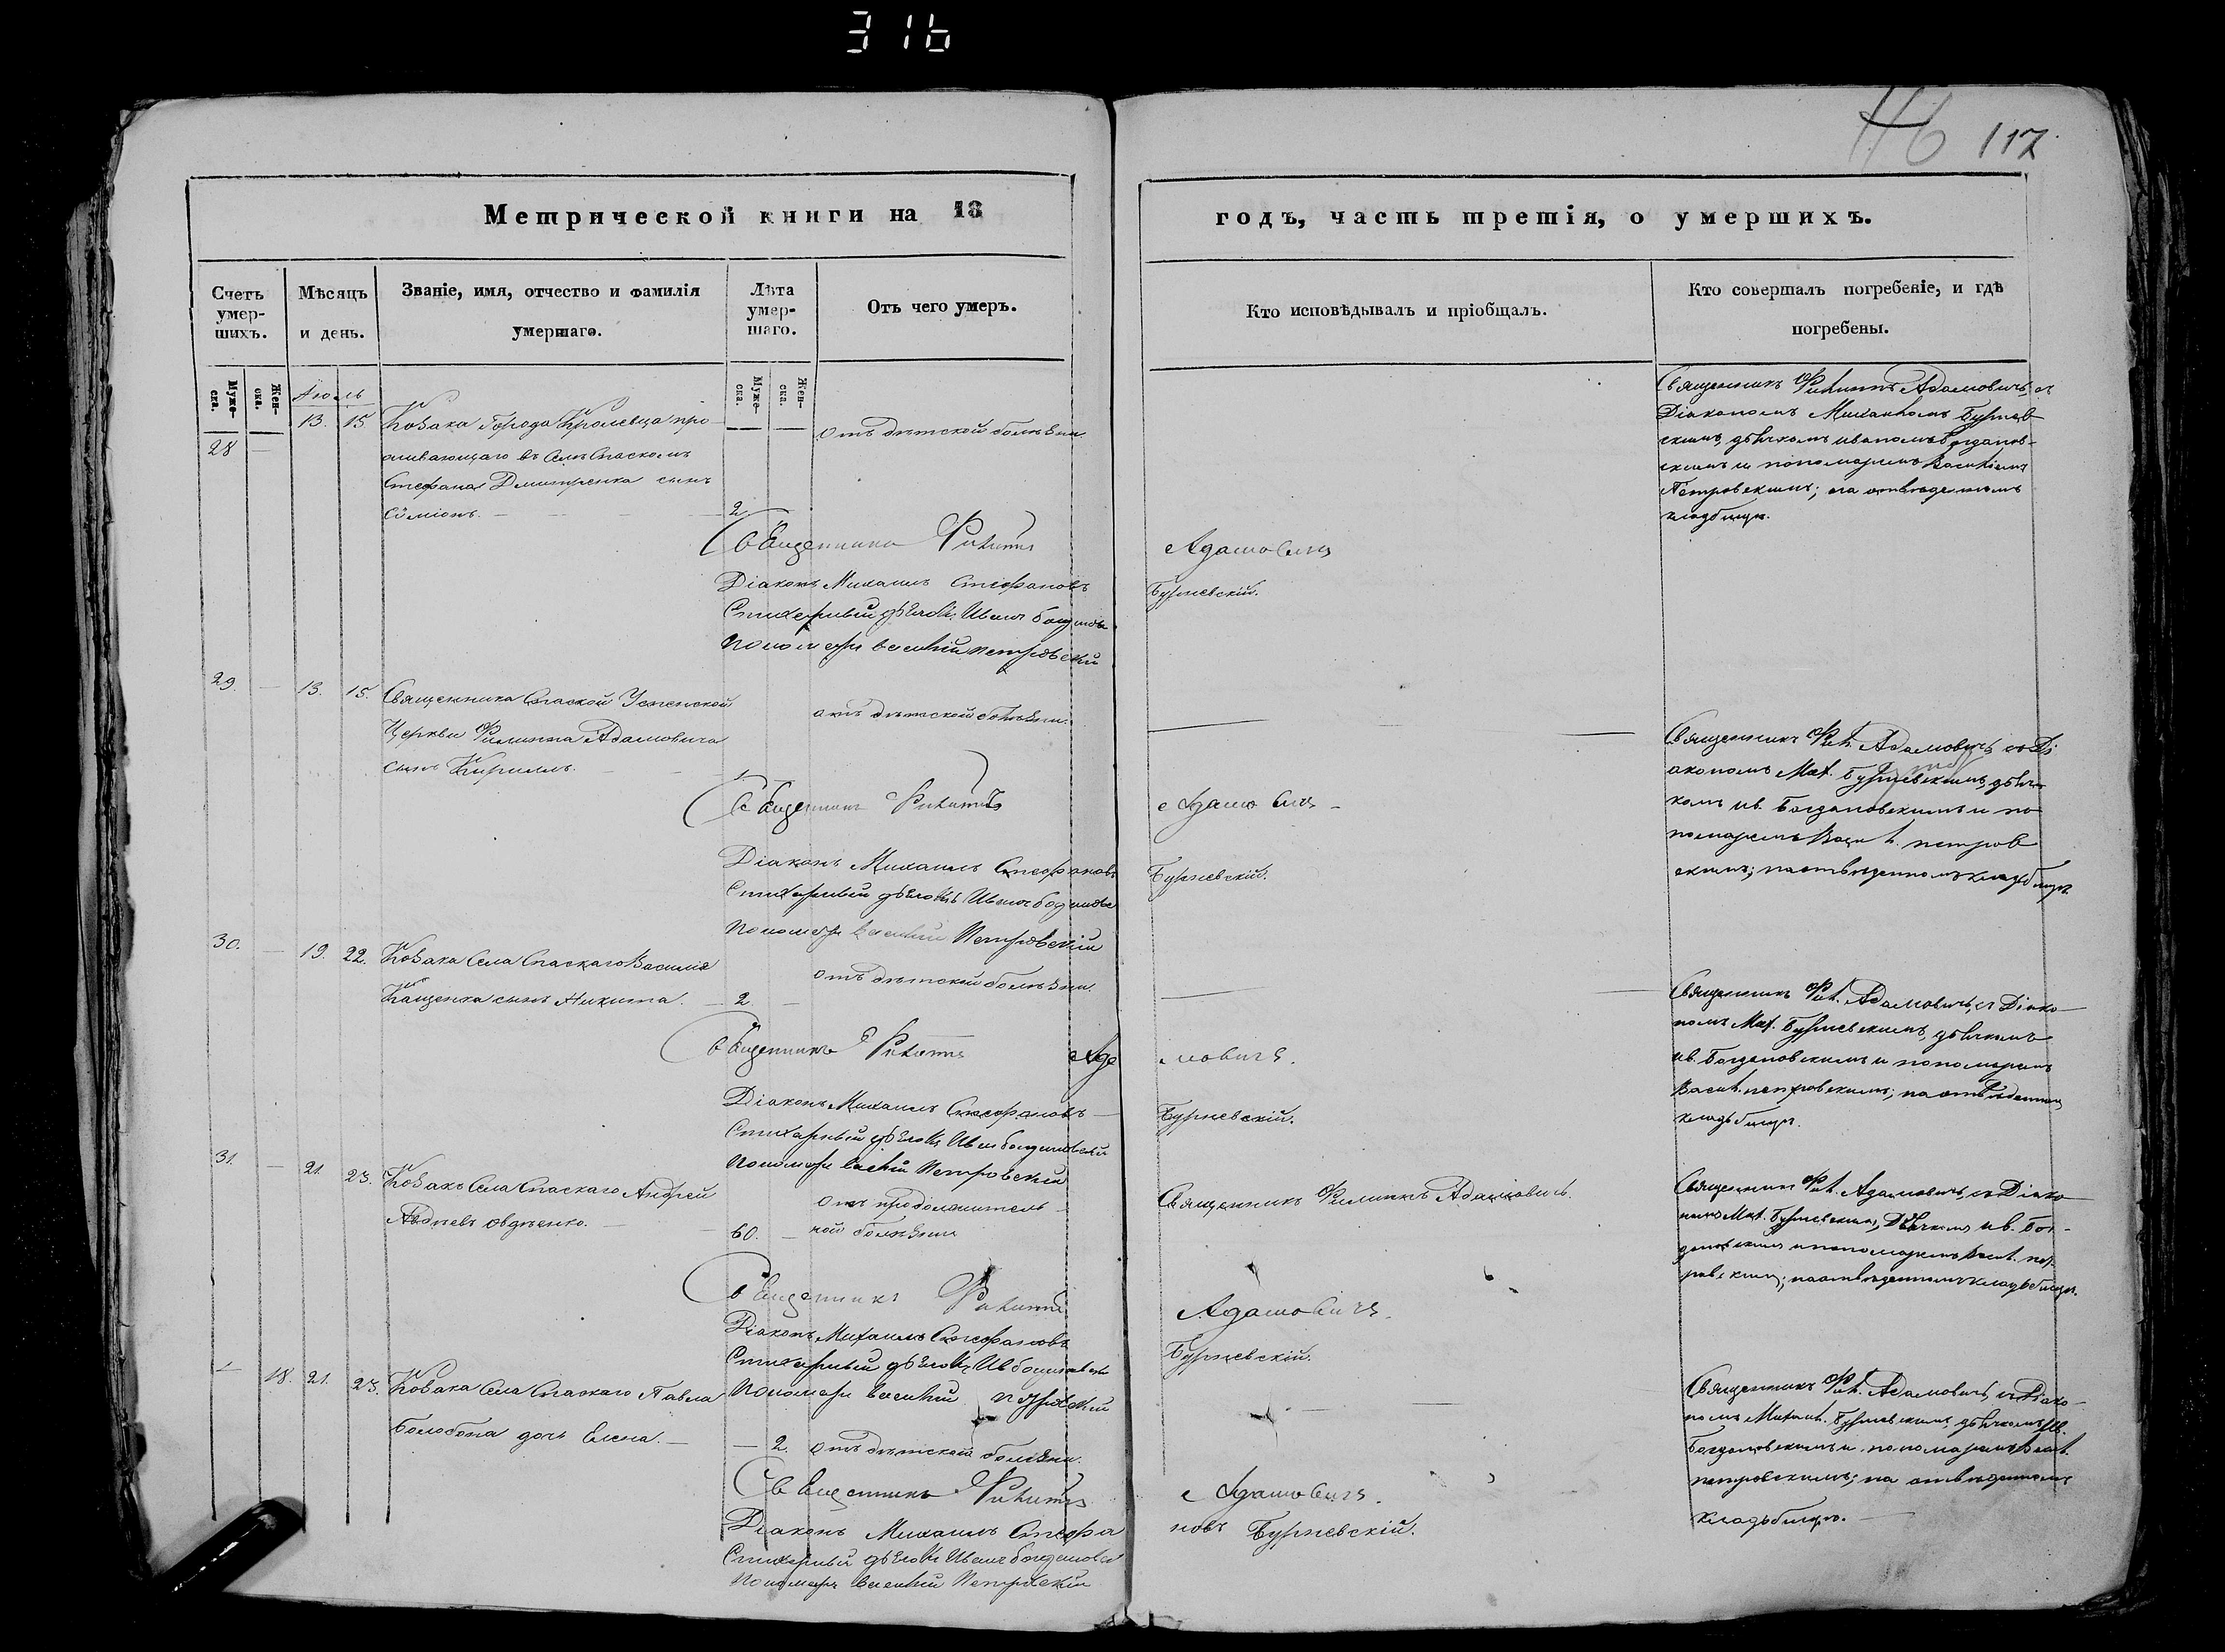 316
116 117
Метрической книги на 18
годъ, часть третія, о умершихъ.
Счетъ умер-шихъ.
Мѣсяцъ и день.
Званіе, имя, отчество и фамилія умершаго.
Лѣта умер-шаго.
Отъ чего умеръ.
Кто исповѣдывалъ и пріобщалъ.
Кто совершалъ погребеніе, и гдѣ погребены.
Муже-ска.
Жен-ска.
Муже-ска.
Жен-ска.
Июль
28 — 13. 15. Козака Города Кролевца про-
живающаго въ Селѣ Спаскомъ
Стефана Дмитренка сынъ
Симіонъ. — 2
отъ дѣтской болѣзни.
Священникъ Филиппъ Адамовичъ, съ
Діакономъ Михаиломъ Бурчев-
скимъ, дьячкомъ Иваномъ Богданов-
скимъ и пономаремъ Василіемъ
Петровскимъ; на отведенномъ
кладбищѣ.
Священникъ Филиппъ Адамовичъ
Діаконъ Михаилъ Стефановъ Бурчевскій.
Стихарный дьячокъ Иванъ
Пономарь Василій Петровскій
29. — 13. 15. Священника Спаской Успенской
Церкви Филиппа Адамовича
сынъ Кириллъ. —
отъ дѣтской болѣзни.
Священникъ Фил. Адамовичъ, съ Ді
акономъ Мих. Бурчевскимъ, дьяч-
комъ Ив. Богдановскимъ и по
номаремъ Васил. Петров
скимъ; на отведенномъ кладбищѣ.
Священникъ Филиппъ Адамовичъ
Діаконъ Михаилъ Стефановъ Бурчевскій.
Стихарный дьячокъ Иванъ
Пономарь Василій Петровскій
30. — 19. 22. Козака Села Спаскаго Василія
Кащенка сынъ Никита. — 2. —
отъ дѣтской болѣзни.
Священникъ Фил. Адамовичъ, съ Діако-
номъ Мих. Бурчевскимъ, дьячкомъ
Ив. Богдановскимъ и пономаремъ
Васил. Петровскимъ; на отведенномъ
кладбищѣ.
Священникъ Филиппъ Адамовичъ.
Діаконъ Михаилъ Стефановъ — Бурчевскій.
Стихарный дьячокъ Иван Богдановскій
Пономарь Василій Петровскій
31. — 21. 23. Козакъ Села Спаскаго Андрей
Авдіевъ Овдѣенко. — 60. —
отъ продолжитель-
ной болѣзни
Священникъ Филиппъ Адамовичъ.
Священникъ Фил. Адамовичъ, съ Діако-
номъ Мих. Бурчевскимъ, Дьячкомъ Ив. Бог-
дановскимъ и пономаремъ Васил. Пет-
ровскимъ; на отведенномъ кладбищѣ.
Священникъ Филиппъ Адамовичъ.
Діаконъ Михаилъ Стефановъ Бурчевскій.
Стихарный дьячокъ Ив
Пономарь Василій Петровскій
— 18. 21. 23. Козака Села Спаскаго Павла
Болобона дочь Елена. — — 2. отъ дѣтской болѣзни.
Священникъ Фил. Адамовичъ, съ Діако-
номъ Михаил. Бурчевскимъ, дьячкомъ Ив.
Богдановскимъ и пономаремъ Васил.
Петровскимъ; на отведенномъ
кладбищѣ. —
Священникъ Филиппъ Адамовичъ.
Діаконъ Михаилъ Стефановъ Бурчевскій.
Стихарный дьячокъ Иванъ
Пономарь Василій Петровскій